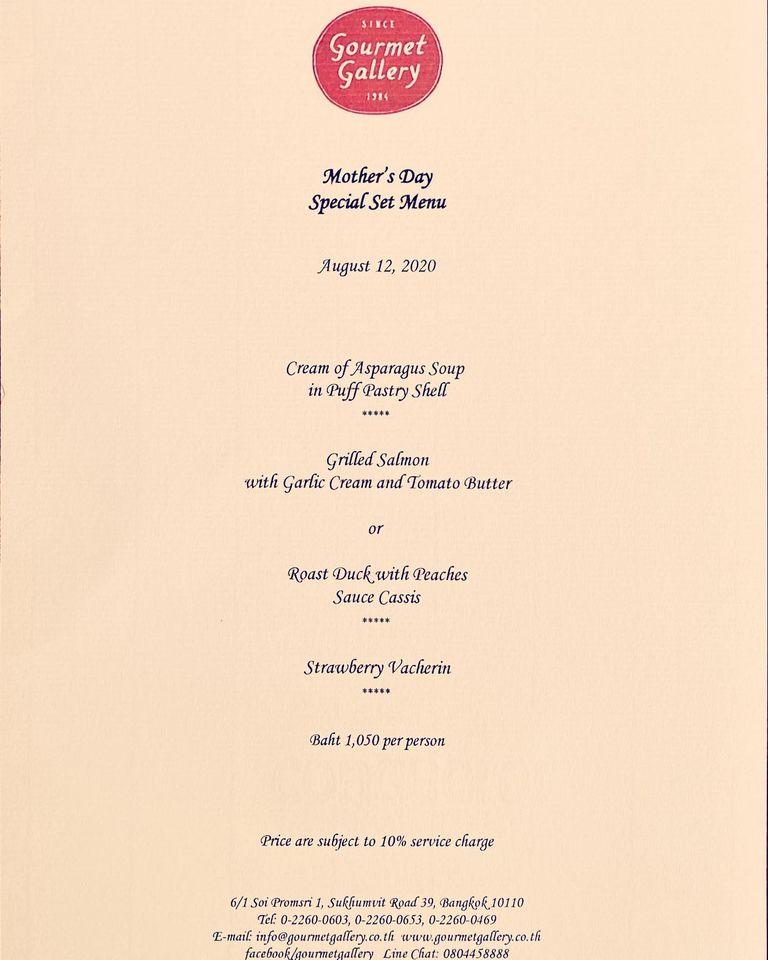 SINCE
Gourmet
Gallery
1984
Mother's Day
Special Set Menu
August 12, 2020
Cream of Asparagus Soup
in Puff Pastry Shell
*****
Grilled Salmon
with Garlic Cream and Tomato Butter
or
Roast Duck with Peaches
Sauce Cassis
*****
Strawberry Vacherin
*****
Baht 1,050 per person
Price are subject to 10% service charge
6/1 Soi Promsri 1, Sukhumvit Road 39, Bangkok 10110
Tel: 0-2260-0603, 0-2260-0653, 0-2260-0469
E-mail: info@gourmetgallery.co.th www.gourmetgallery.co.th
facebook/gourmetgallery Line Chat: 0804458888